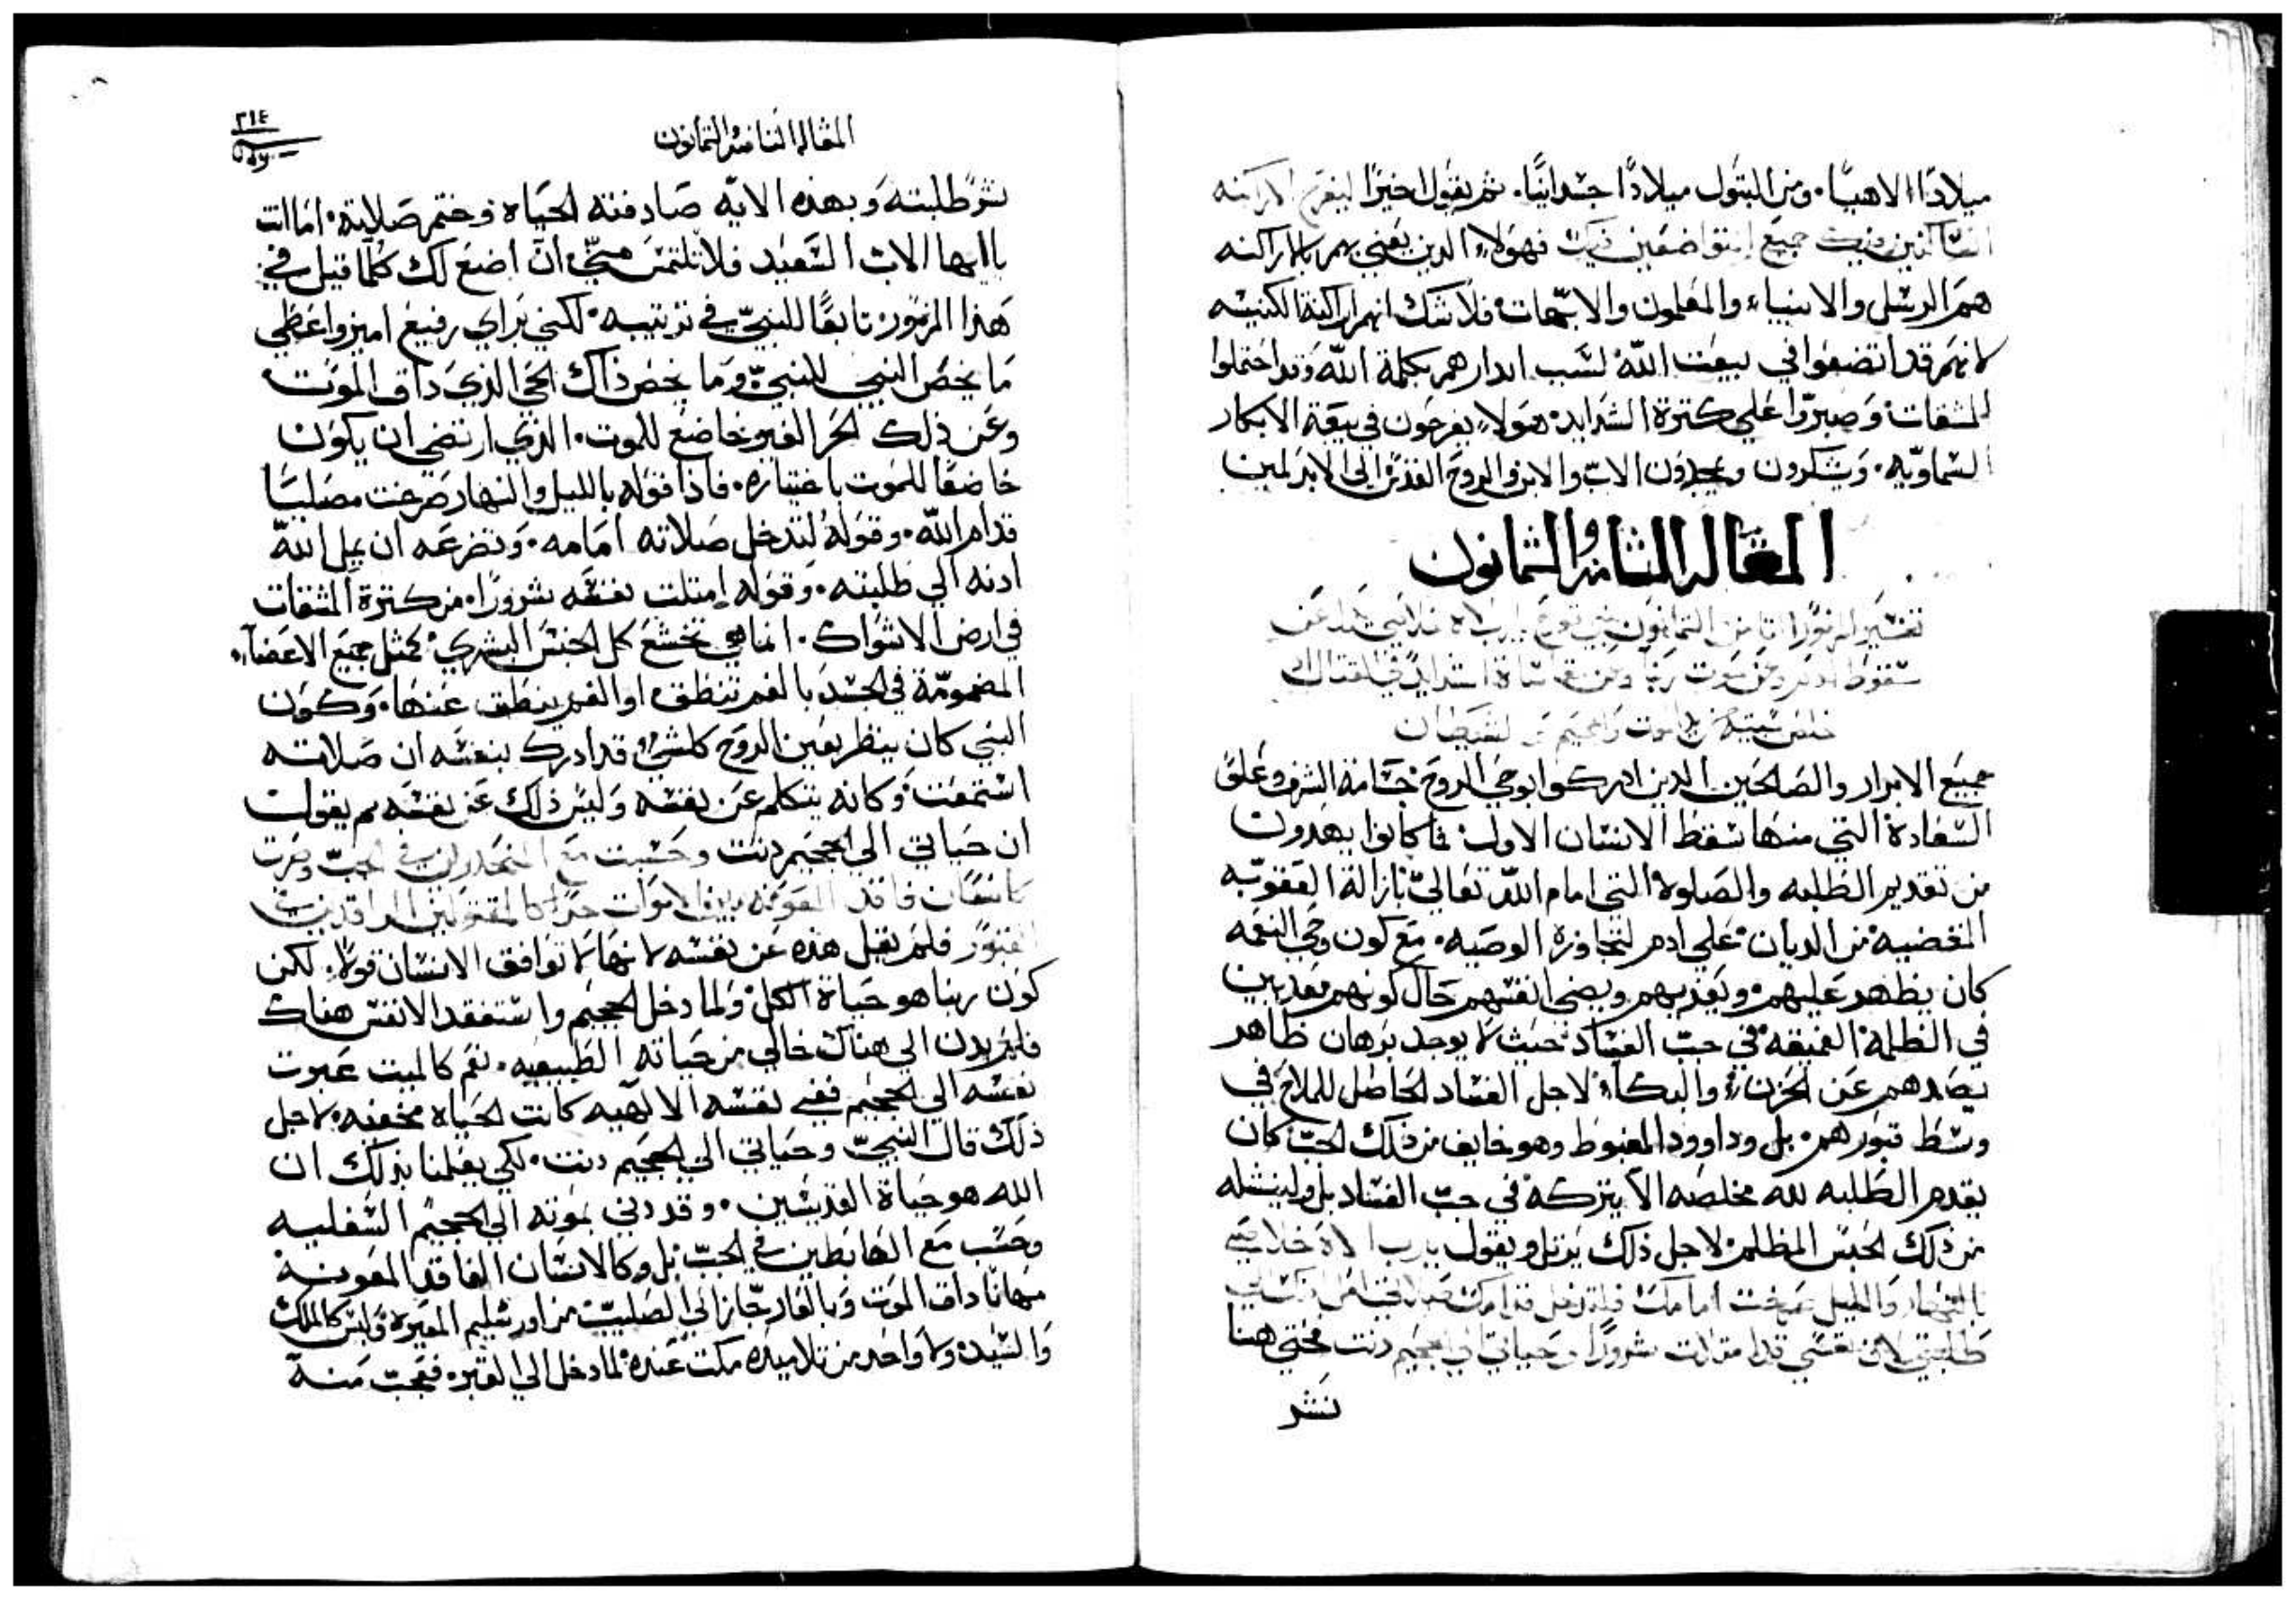 ميلادًا الاهيًا. ومن البتول ميلادًا جسدانيًا. ثم يقول اخيرًا ليفرح الاراكنه
جميع المتواضعين فهولاء الدين يعني بهم بالاراكنه
هم الرسل والانبياء والمعلمون والابهات فلا شك انهم اراكنة الكنيسه
لانهم قد اتضعوا في بيعت اللّه لسبب اندارهم بكلمة اللّه وقد احتملوا
المشقات وصبروا علي كترة الشدايد هولاء يفرحون في بيعة الابكار
السماويه. ويشكرون ويمجدون الابّ والابن والروح القدس الي الابد امين
المقاله الثامنه والثمانون
تفسير المزمور الثامن والثمانون
سقوط ادم وعن موت ربنا وعن
جميع الابرار والصالحين الدين ادركوا بوحي الروح جسامة الشرف وعلو
السعادة التي منها سقط الانسان الاول فما كانوا يهدون
من تقديم الطلبه والصلوة التي امام اللّه تعالي بازالة العقوبه
المقضيه من الديان علي ادم لتجاوزه الوصيه. مع كون وحي النعمه
كان يظهر عليهم ويعزيهم ويضي انفسهم حال كونهم مقديين
في الظلمة العميقه في جبّ الفساد حيث لا يوجد برهان ظاهر
يصدهم عن الحزن والبكاء لاجل الفساد الحاصل للملاح في
وسط قبورهم بل وداوود المغبوط وهو خايف من ذلك الجبّ كان
يقدم الطلبه للّه مخلصه الا يتركه في جبّ الفساد بل ولينشله
من ذلك الحبس المظلم لاجل ذلك يرتل ويقول يارب الاه خلاصي
بالنهار والليل صرخت امامك فلتدخل قدامك صلاتي امل
طلبتي لان نفسي قد امتلات شرورًا وحياتي الي الجحيم دنت فحتي هنا
نشر
المقاله الثامنه والثمانون
٣١٤
نشر طلبته وبهذه الايه صادفته الحياه وختم صلاته. اما انت
ياايها الاب السعيد فلا تلتمس مني ان اضع لك كلما قيل في
هذا المزمور تابعًا للنبيّ في ترتيبه. لكني براي رفيع اميز واعطي
ما يخص النبي للنبيّ وما يخص ذاك الحي الذي داق الموت
وعن ذلك الحر الغير خاضع للموت. الذي ارتضي ان يكون
خاضعًا للموت باختياره. فاذًا قوله بالليل والنهار صرخت مصليًا
قدام اللّه. وقوله لتدخل صلاته امامه. وتضرعه ان يميل اللّه
ادنه الي طلبته. وقوله امتلت نفسه شرورًا. من كترة المشقات
في ارض الاشواك. انما هي تخشع كل الجنس البشري كمثل جميع الاعضآء
المضمومة في الجسد بالفم تنطق او الفم ينطق عنها. وكون
النبي كان ينظر بعين الروح كلشي قد ادرك بنفسه ان صلاته
استمعت وكانه يتكلم عن نفسه وليس ذلك عن نفسه ثم يقول
ان حياتي الي الجحيم دنت وحسبت مع المنحدرين في الجب وصرت
كانسان فاقد المعونه بين الاموات حرًا كالمقتولين الراقدين في
القبور فلم يقل هذه عن نفسه لانها لا توافق الانسان قولاً. لكن
كون ربنا هو حياة الكل ولما دخل الجحيم واستفقد الانفس هناك
فلم يدن الي هناك خالي من حياته الطبيعيه. نعم كالميت عبرت
نفسه الي الجحيم ففي نفسه الالهيه كانت الحياه مخفيه. لاجل
ذلك قال النبيّ وحياتي الي الجحيم دنت. لكي يعلمنا بذلك ان
الله هو حياة القديسين. وقد دني بموته الي الجحيم السفليه
وحسب مع الهابطين في الجبّ بل وكالانسان الفاقد المعونه
مهانًا داق الموت وبالعار جاز الي الصليب من اورشليم المعيره وليس كالملك
والسيد. ولا واحد من تلاميده مكت عنده لما دخل الي القبر. فعجبت منه